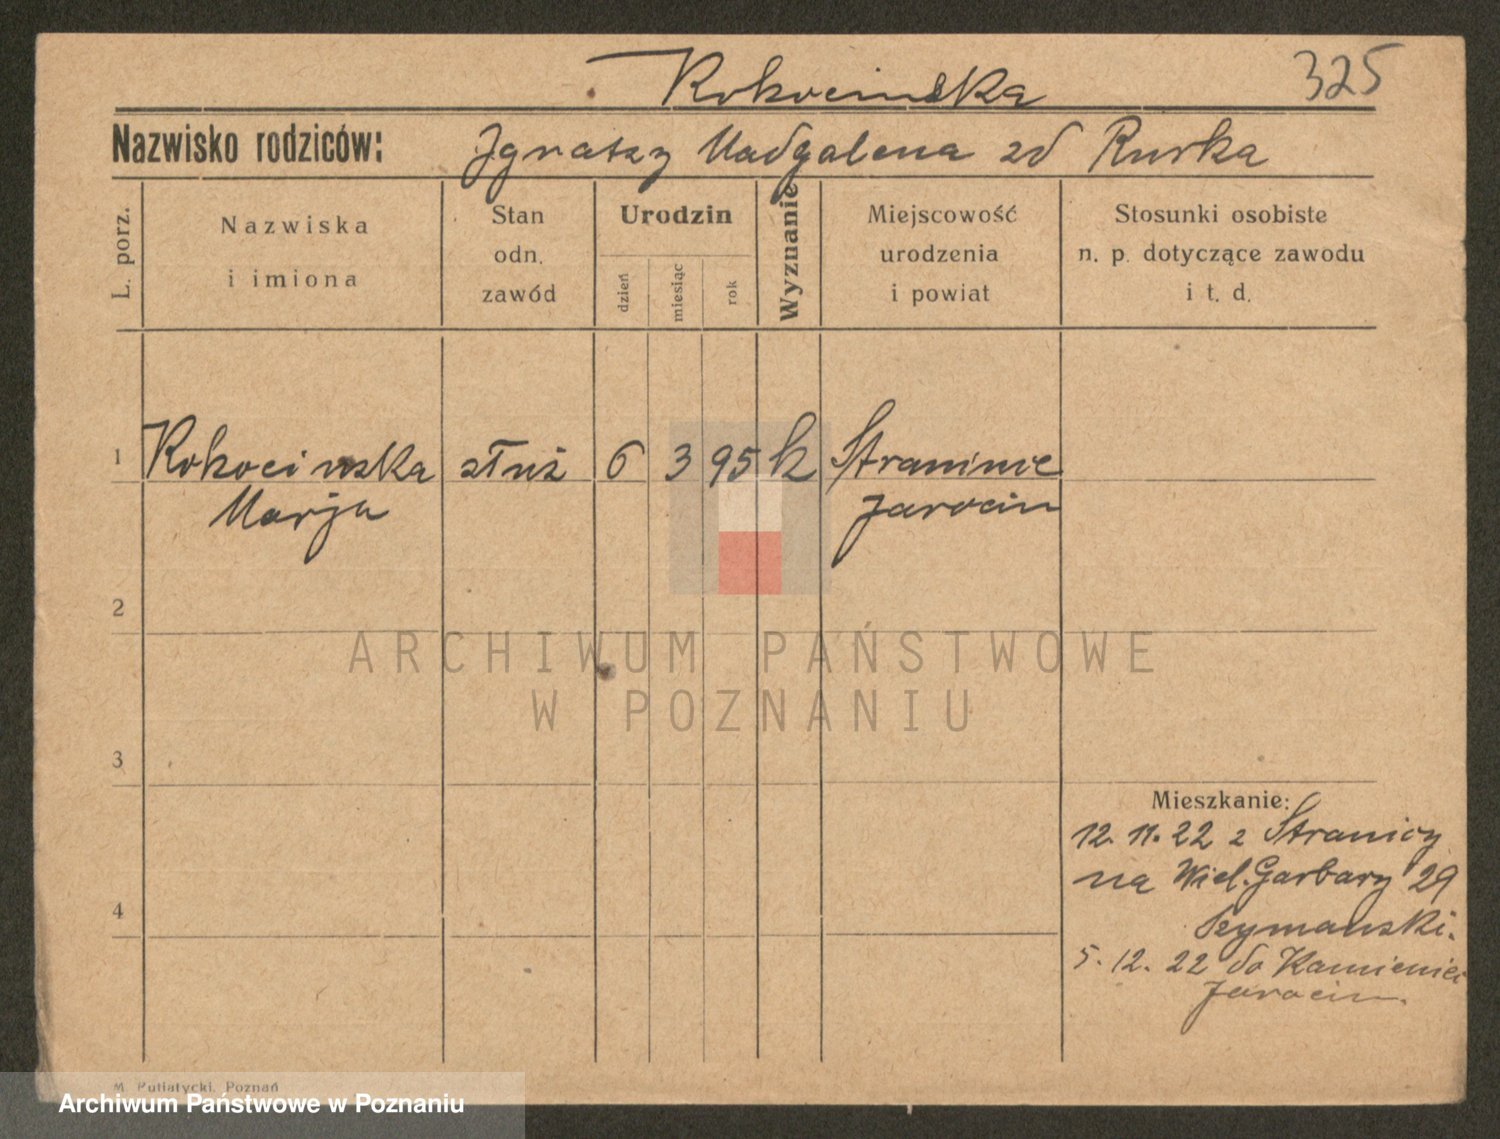 Rokocinska
325
Nazwisko rodziców: Ignatzy Madgalena zd Rurka
L. porz.
Nazwiska
i imiona
Stan
odn.
zawód
Urodzin
dzień
miesiąc
rok
Wyznanie
Miejscowość
urodzenia
i powiat
Stosunki osobiste
n. p. dotyczące zawodu
i t. d.
1 Rokocinska służ 6 3 95 k
Marja Jarocin
2
3
4
Mieszkanie:
12. 11. 22 z
na Wiel. Garbary 29
Szymanski.
5. 12. 22 do
Jarocin.
M. Putiatycki, Poznań
ARCHIWUM PAŃSTWOWE
W POZNANIU
Archiwum Państwowe w Poznaniu